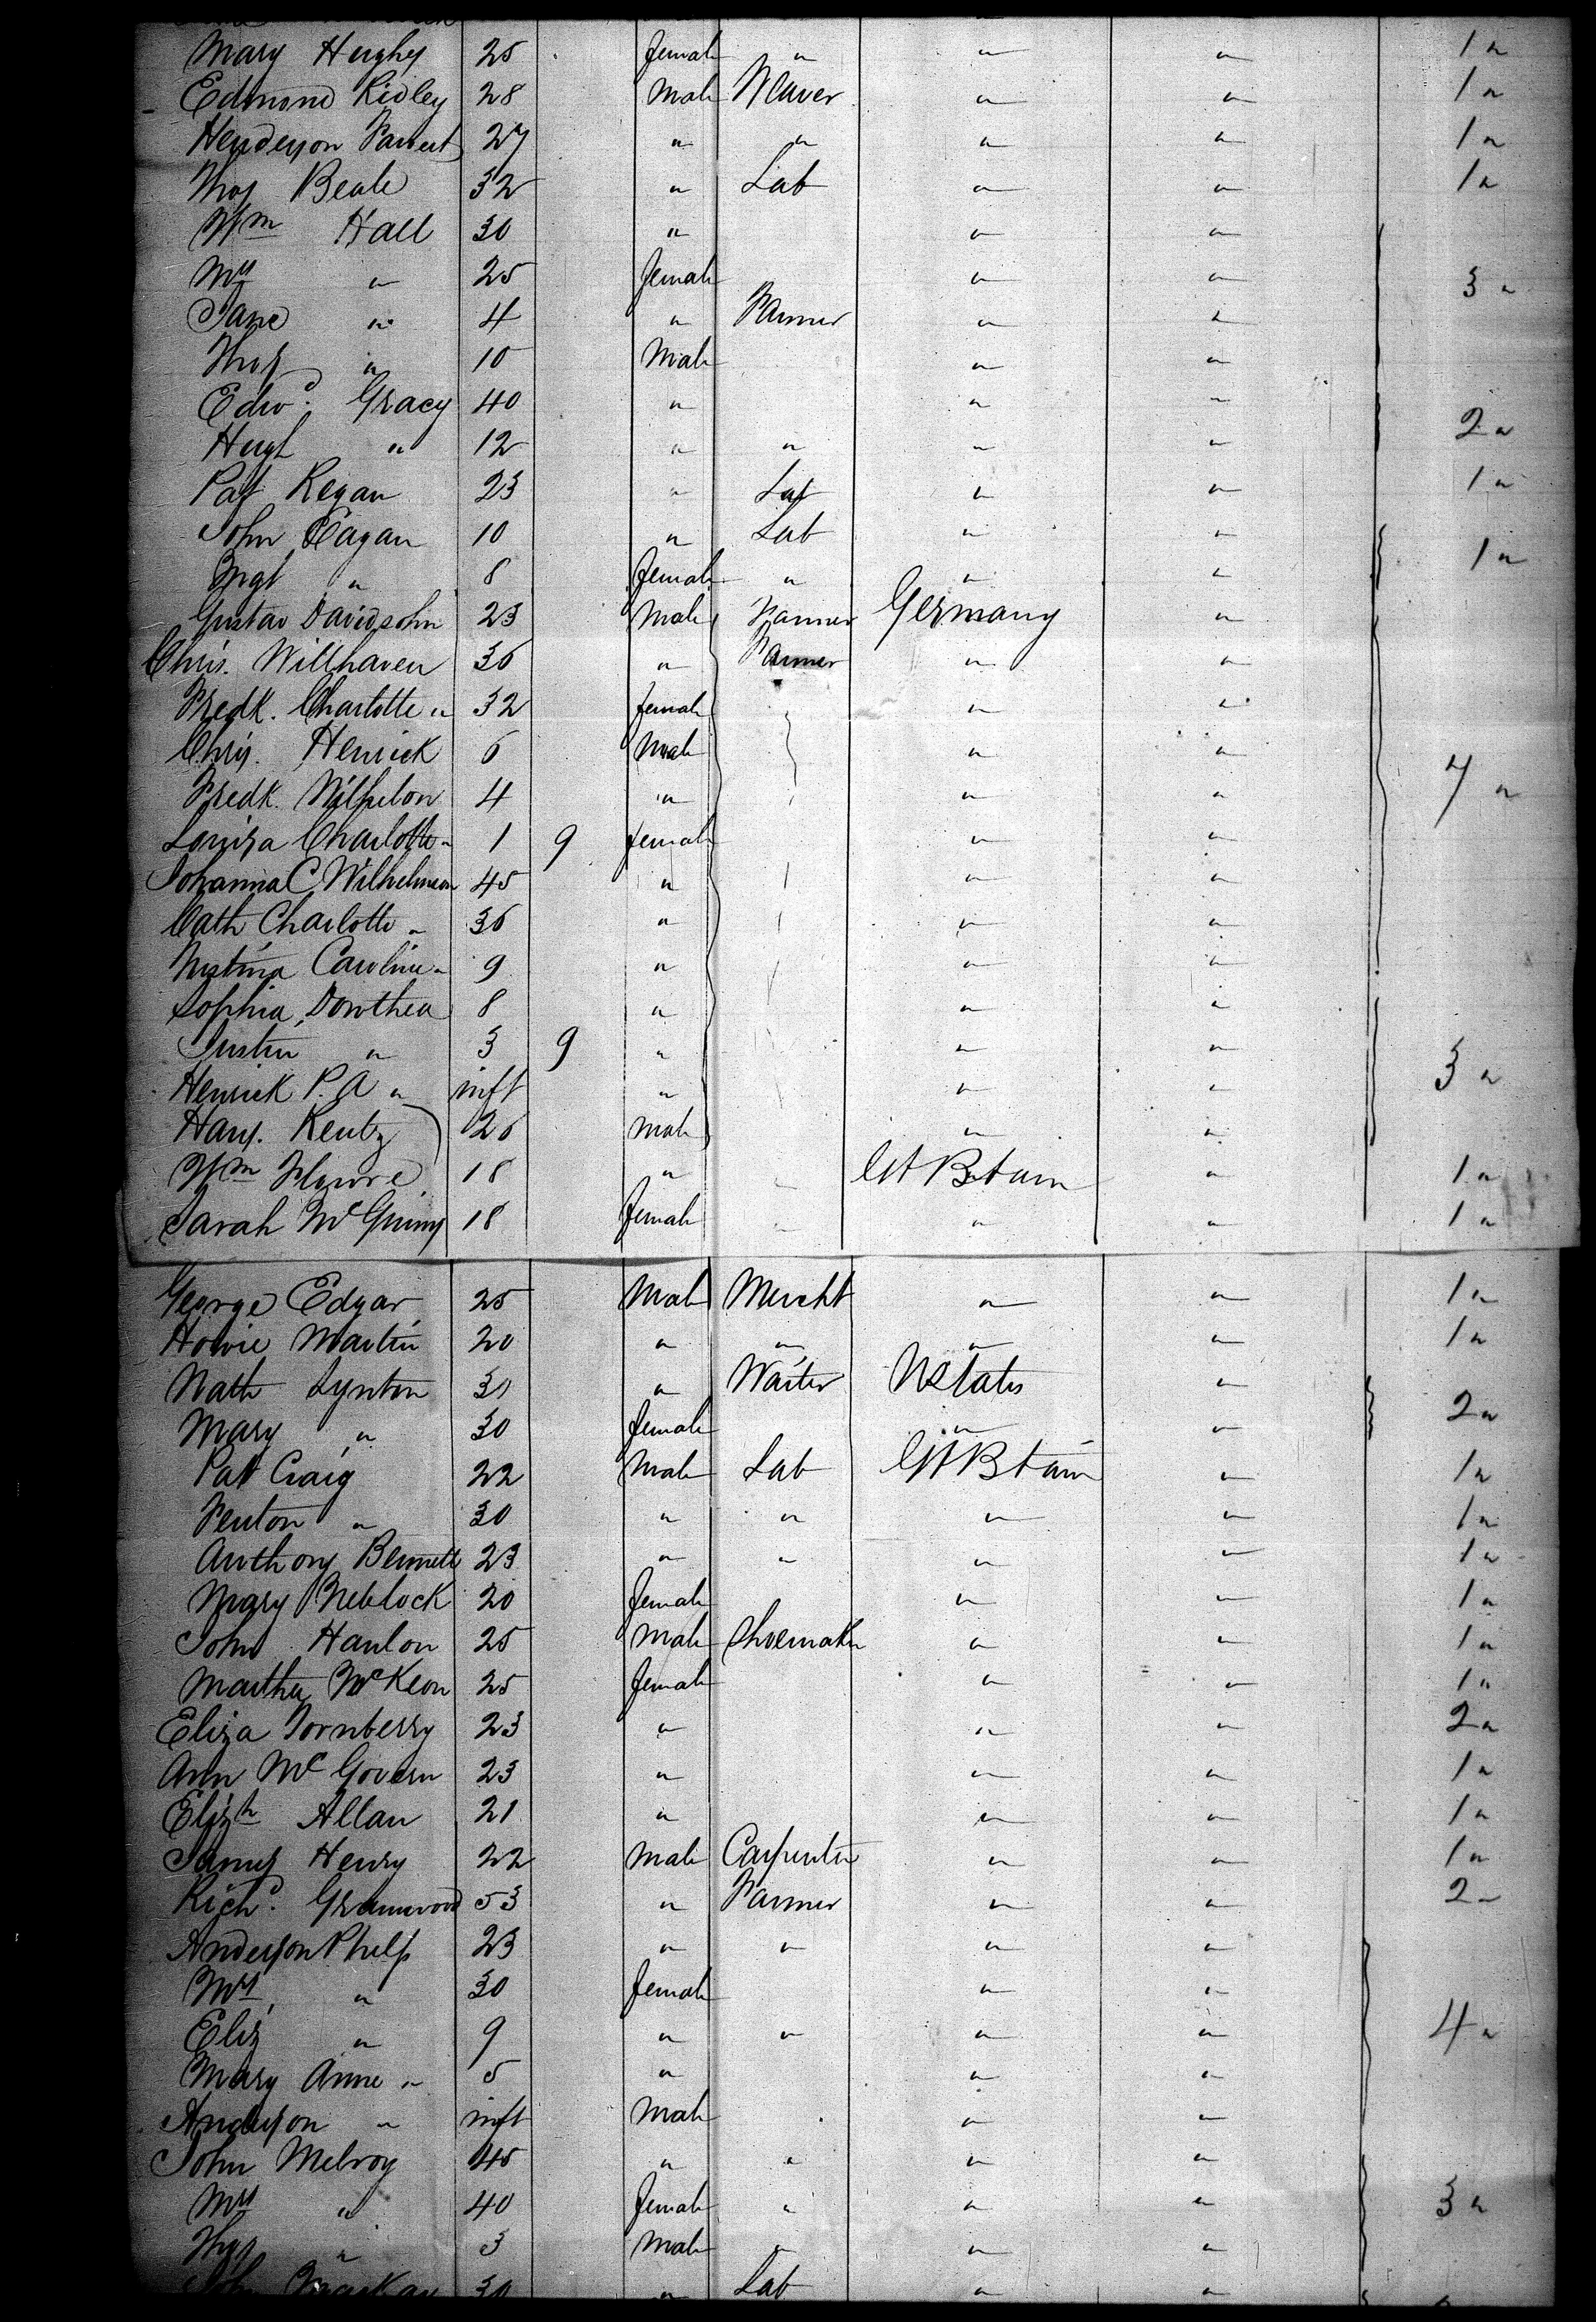 Mary Hughs 25 female " " " 1 "
Edmond Ridley 28 Male Weaver " " 1 "
Henderson 27 " " " " 1 "
Thos Beale 32 " Lab " " 1 "
Wm Hall 30 " " "
Mrs " 25 female " " 3 "
Jane " 4 " Farmer " "
Thos " 10 Male " "
Edwd. Gracy 40 " " "
Hugh " 12 " " " " 2 "
Pat Regan 23 " Lab " " 1 "
John Eagan 10 " Lab " "
Mgt " 8 female " " " 1 "
Gustav Davidsohn 23 Male Farmer Germany "
Chris. Willhaven 36 " Farmer " "
Fredk. Charlotte " 32 female " "
Chris. Henrick 6 Male " "
Fredk. 4 " " " 7 "
Louisa Charlotte " 1 9 female " "
Johanna C. 45 " " "
Cath Charlotte " 36 " " "
Caroline " 9 " " "
Sophia Dorothea 8 " " "
Justin " 3 9 " " "
Henrick P. A " inft " " " 3 "
Hans. Rentz 26 male " "
Wm 18 " Gt Btain " 1 "
Sarah 18 female " " 1 "
George Edgar 25 Male Mercht " " 1 "
Howie Martin 20 " " " " 1 "
Nath Lynton 30 " Waiter UStates "
Mary " 30 female " " 2 "
Pat Craig 22 Male Lab Gt Btain " 1 "
Fenton " 30 " " " " 1 "
Anthony Bennett 23 " " " " 1 "
Mary 20 female " " 1 "
John Hanlon 25 Male Shoemaker " " 1 "
Martha McKeon 25 female " " 1 "
Eliza Tornberry 23 " " " 2 "
Ann McGovern 23 " " " 1 "
Elizh Allan 21 " " " 1 "
James Henry 22 Male Carpenter " " 1 "
Richd. 53 " Farmer " " 2 "
Anderson Phelps 23 " " " "
Mrs. " 30 female " "
Eliz " 9 " " " " 4 "
Mary Anne " 5 " " "
Anderson " inft Male " "
John Melroy 45 " " " "
Mrs " 40 female " " " 3 "
Thos " 3 Male " " "
John 30 " Lab " "